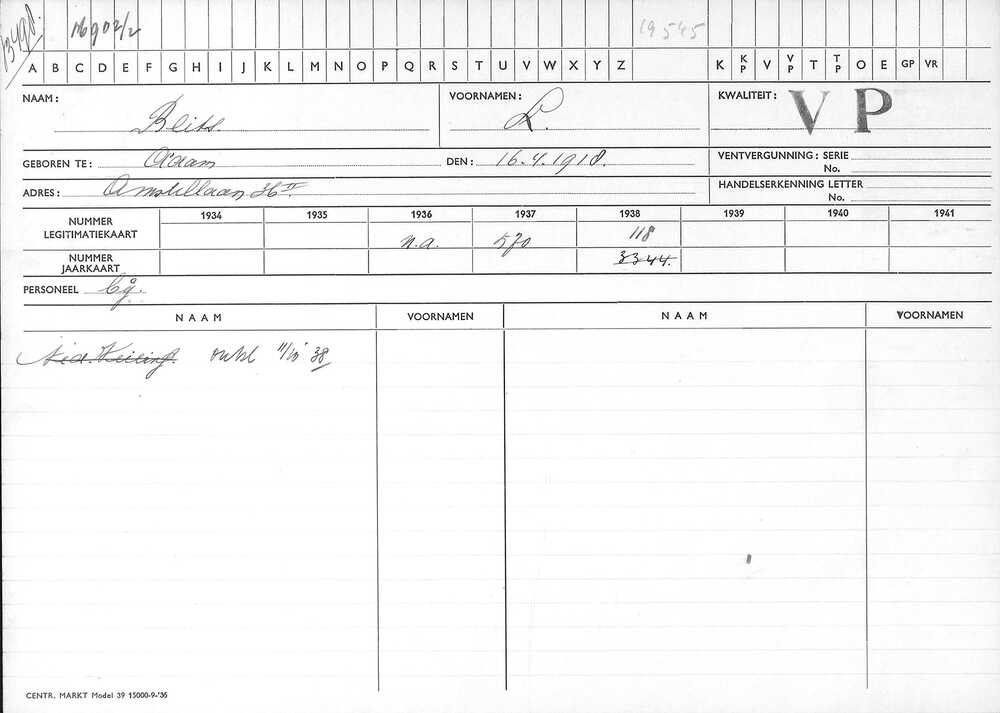 3498.
16902/2
19545
A B C D E F G H I J K L M N O P Q R S T U V W X Y Z K KP V VP T TP O E GP VR
NAAM: Blits. VOORNAMEN: L. KWALITEIT: V P
GEBOREN TE: A'dam DEN: 16.4.1918. VENTVERGUNNING: SERIE
No.
ADRES: Amstellaan 36 II HANDELSERKENNING LETTER
No.
1934 1935 1936 1937 1938 1939 1940 1941
NUMMER LEGITIMATIEKAART n.a. 570 118
NUMMER JAARKAART 3344.
PERSONEEL bij.
NAAM VOORNAMEN NAAM VOORNAMEN
38
CENTR. MARKT Model 39 15000-9-'36